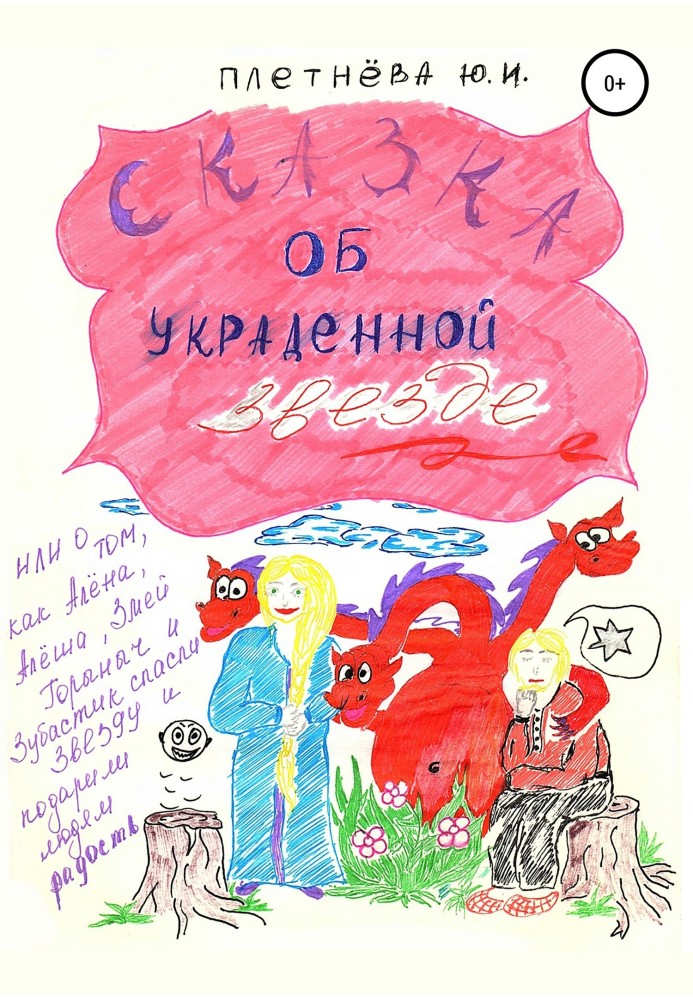 ПЛЕТНЁВА Ю.И.
0+
СКАЗКА
ОБ
УКРАДЕННОЙ
звезде
ИЛИ О ТОМ,
как Алёна,
Алёша, Змей
Горыныч и
Зубастик спасли
ЗВЕЗДУ и
подарили
людям
радость